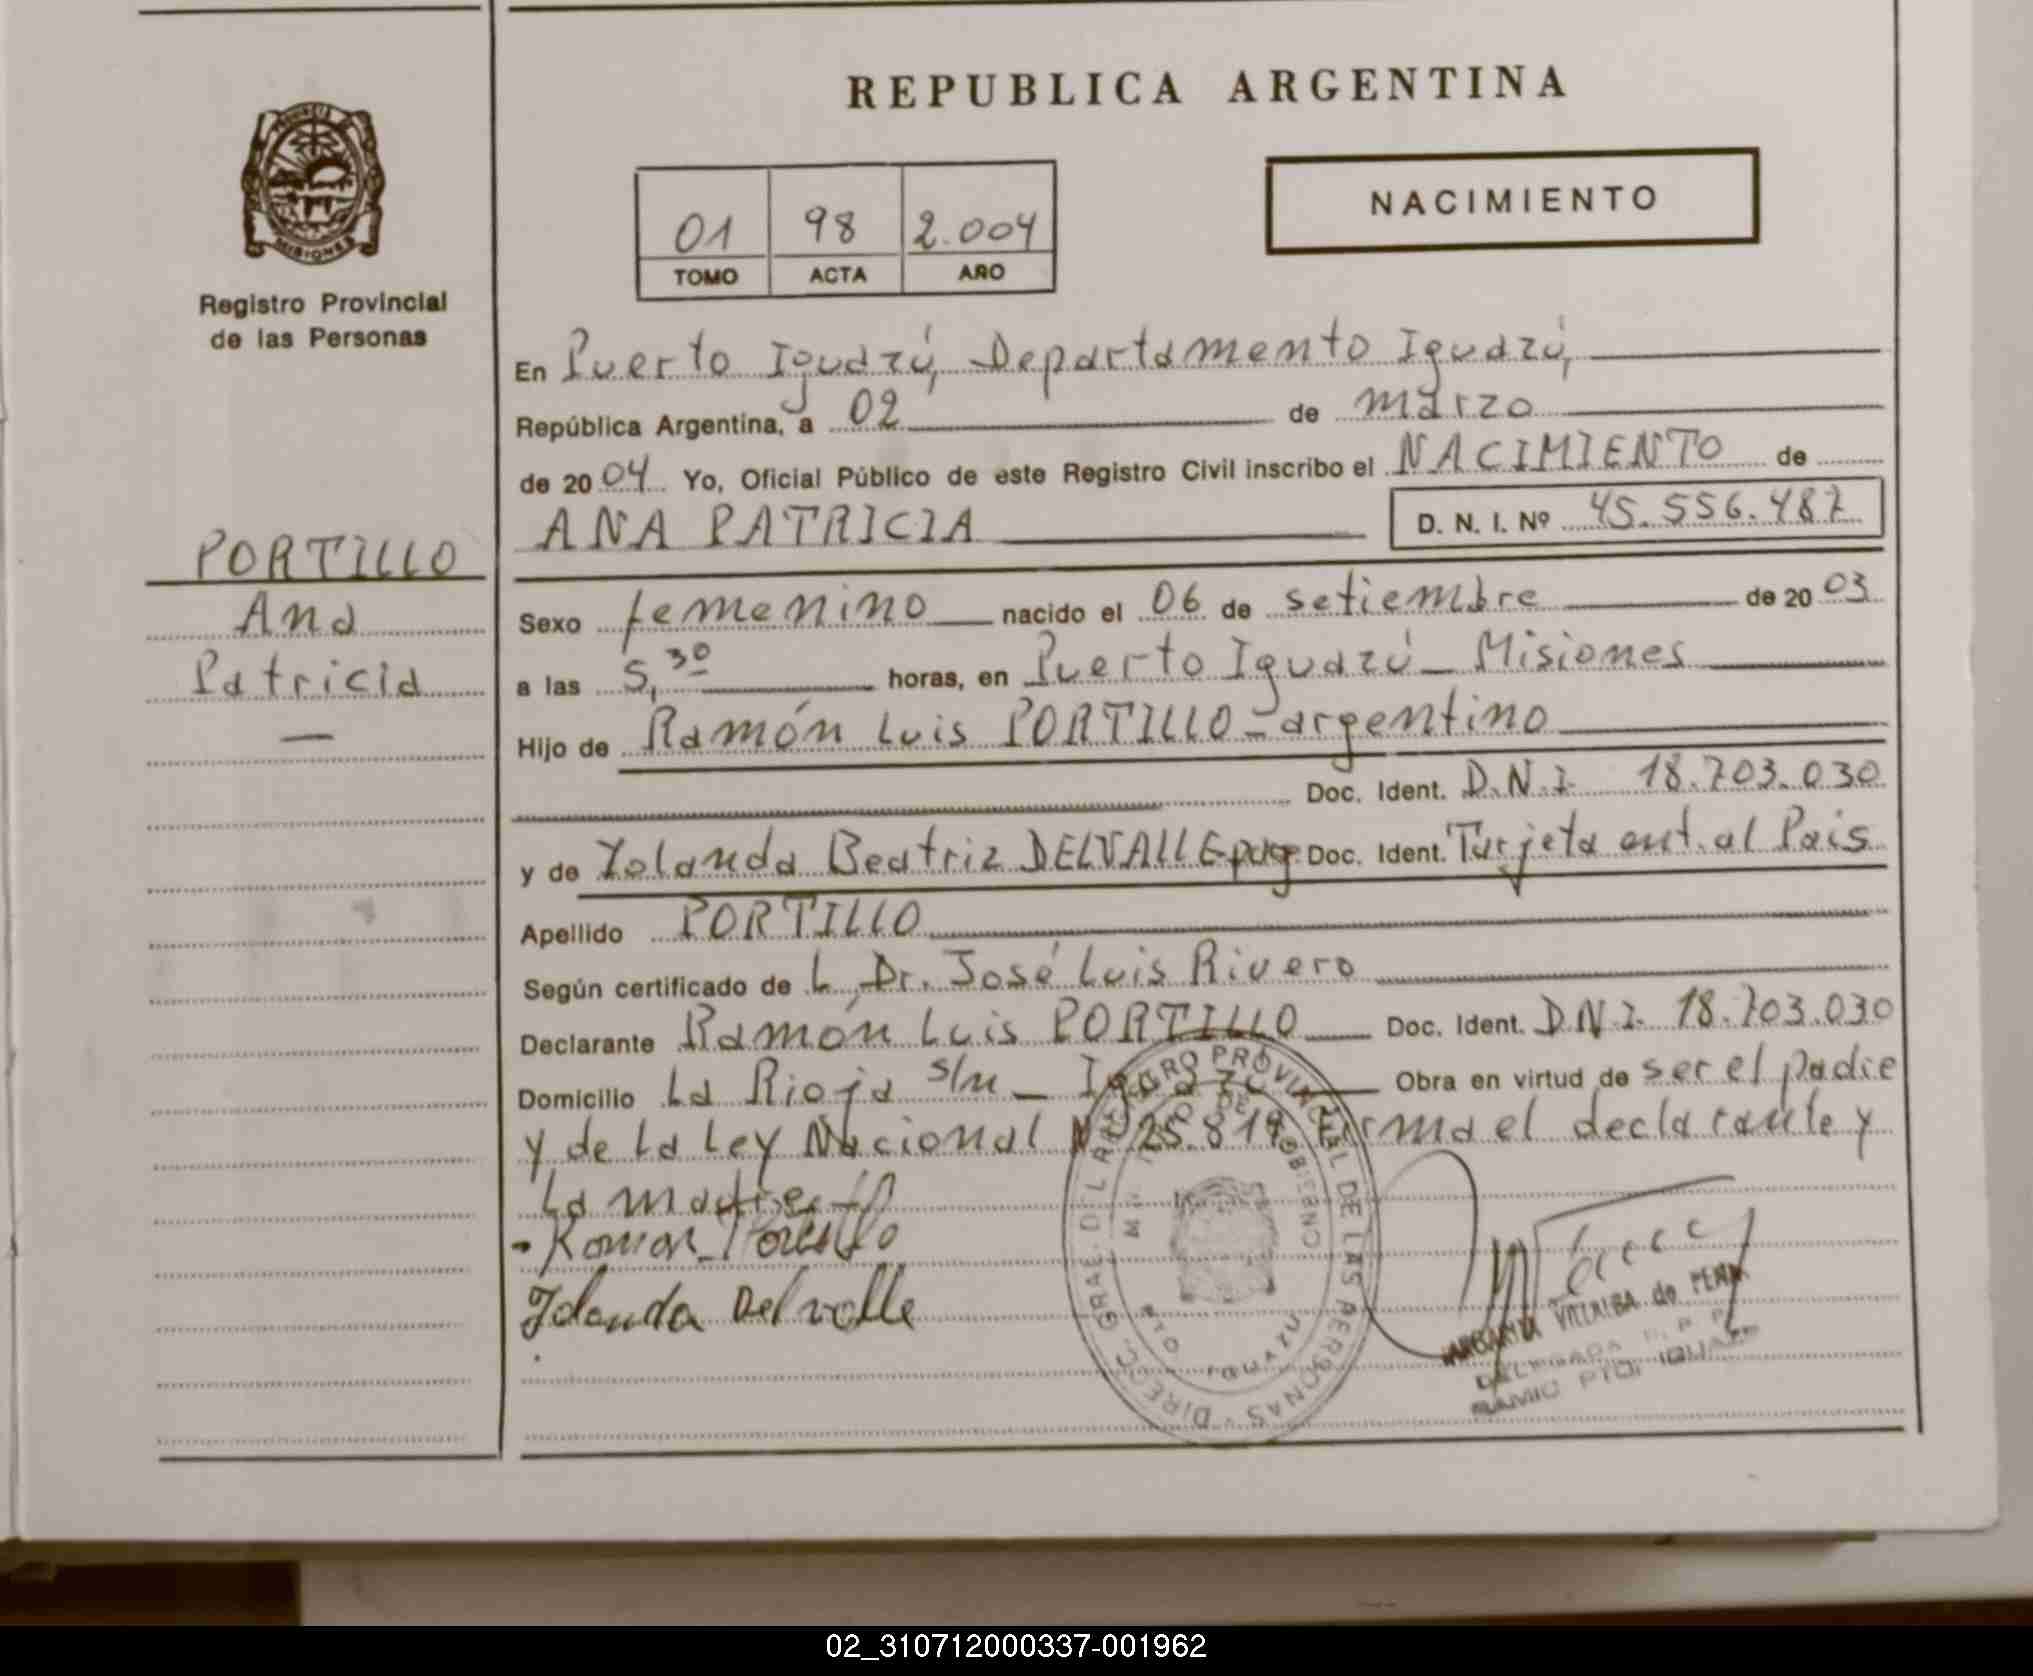 REPUBLICA ARGENTINA
PROVINCIA
MISIONES
Registro Provincial
de las Personas
NACIMIENTO
01 98 2.004
TOMO ACTA AÑO
En Puerto Iguazú, Departamento Iguazú,
República Argentina, a 02 de marzo
de 2004 Yo, Oficial Público de este Registro Civil inscribo el NACIMIENTO de
ANA PATRICIA D. N. I. Nº 45.556.487
PORTILLO
Ana
Patricia
—
Sexo femenino nacido el 06 de setiembre de 2003
a las 5,30 horas, en Puerto Iguazú - Misiones
Hijo de Ramón Luis PORTILLO - argentino
Doc. Ident. D.N.I. 18.703.030
y de Yolanda Beatriz DELVALLE parag Doc. Ident. Tarjeta ent. al Pais
Apellido PORTILLO
Según certificado de L. Dr. José Luis Rivero
Declarante Ramón Luis PORTILLO Doc. Ident. D.N.I. 18.703.030
Domicilio La Rioja s/n - Iguazú Obra en virtud de ser el padre
y de La Ley Nacional Nº 25.819 Firma el declarante y
La madre
Ramon Portillo
Yolanda Delvalle
DIREC. GRAL. DEL REGISTRO PROVINCIAL DE LAS PERSONAS
DE GOBIERNO
PTO. IGUAZU
VILLALBA de PEÑA
DELEGADA R. P. P.
PTO. IGUAZU
02_310712000337-001962